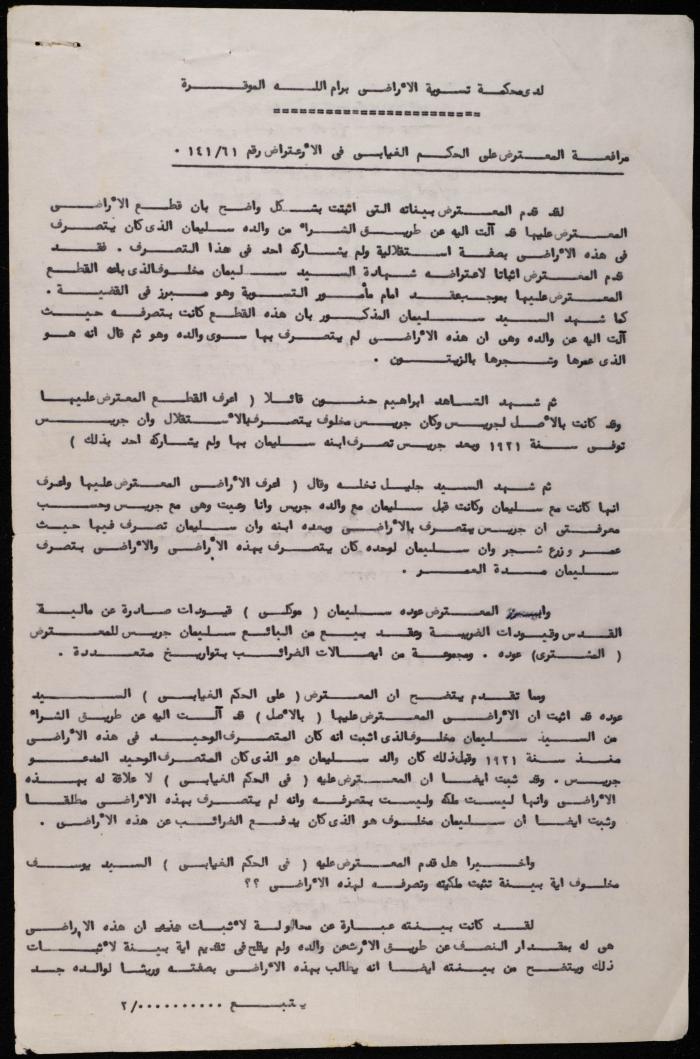 لدى محكمة تسوية الاراضى برام اللـه الموقـرة
=======================
مرافعة المعترض على الحكم الغيابى فى الاعتراض رقم ١٤١/٦١ ٠
لقد قدم المعترض بيناته التى اثبتت بشكل واضح بان قطع الاراضى
المعترض عليها قد آلت اليه عن طريق الشراء من والده سليمان الذى كان يتصرف
فى هذه الاراضى بصفة استقلالية ولم يشاركه احد فى هذا التصرف . فقد
قدم المعترض اثباتا لاعتراضه شهادة السيد سليمان مخلوف الذى باعه القطع
المعترض عليها بموجب عقد امام مأمور التسوية وهو مبرز فى القضية .
كما شهد السيد سليمان المذكور بان هذه القطع كانت بتصرفه حيث
آلت اليه عن والده وهى ان هذه الاراضى لم يتصرف بها سوى والده وهو ثم قال انه هو
الذى عمرها وشجرها بالزيتون .
ثم شهد الشاهد ابراهيم حنون قائلا ( اعرف القطع المعترض عليها
وقد كانت بالاصل لجريس وكان جريس مخلوف يتصرف بالاستقلال وان جريس
توفى سنة ١٩٢١ وبعد جريس تصرف ابنه سليمان بها ولم يشاركه احد بذلك )
ثم شهد السيد جليل نخله وقال ( اعرف الاراضى المعترض عليها واعرف
انها كانت مع سليمان وكانت قبل سليمان مع والده جريس وانا وعيت وهى مع جريس وحسب
معرفتى ان جريس يتصرف بالاراضى وبعده ابنه وان سليمان تصرف فيها حيث
عمر وزرع شجر وان سليمان لوحده كان يتصرف بهذه الاراضى والاراضى بتصرف
سليمان مدة العمر .
وابرز المعترض عوده سليمان ( موكلى ) قيودات صادرة عن مالية
القدس وقيودات الضريبة وعقد بيع من البائع سليمان جريس للمعترض
( المشترى ) عوده . ومجموعة من ايصالات الضرائب بتواريخ متعددة .
ومما تقدم يتضح ان المعترض ( على الحكم الغيابى ) السيد
عوده قد اثبت ان الاراضى المعترض عليها ( بالاصل ) قد آلت اليه عن طريق الشراء
من السيد سليمان مخلوف الذى اثبت انه كان المتصرف الوحيد فى هذه الاراضى
منذ سنة ١٩٢١ وقبل ذلك كان والد سليمان هو الذى كان المتصرف الوحيد المدعو
جريس . وقد ثبت ايضا ان المعترض عليه ( فى الحكم الغيابى ) لا علاقة له بهذه
الاراضى وانها ليست ملكه وليست بتصرفه وانه لم يتصرف بهذه الاراضى مطلقا
وثبت ايضا ان سليمان مخلوف هو الذى كان يدفع الضرائب عن هذه الاراضى .
واخيرا هل قدم المعترض عليه ( فى الحكم الغيابى ) السيد يوسف
مخلوف اية بينة تثبت ملكيته وتصرفه لهذه الاراضى ؟؟
لقد كانت بينته عبارة عن محاولة لاثبات ان هذه الاراضى
هى له بمقدار النصف عن طريق الارث عن والده ولم يفلح فى تقديم اية بينة لاثبات
ذلك ويتضح من بينته ايضا انه يطالب بهذه الاراضى بصفته وريثا لوالده جد
يتبع ٠٠٠٠٠٠٠٠٠٠/٢